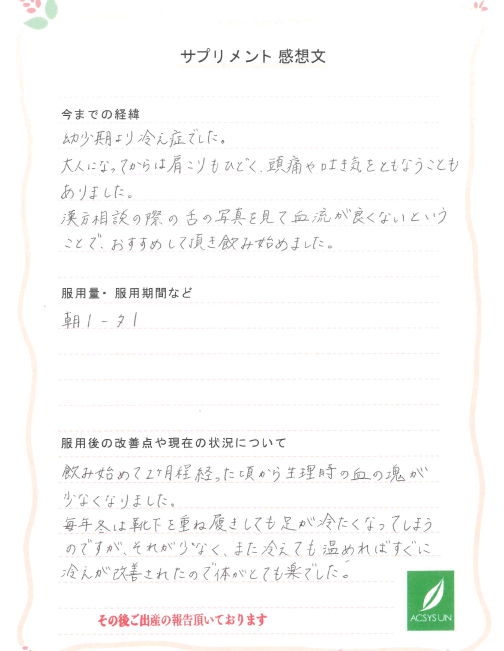 サプリメント 感想文
今までの経緯
幼少期より冷え症でした。
大人になってからは肩こりもひどく、頭痛や吐き気をともなうことも
ありました。
漢方相談の際の舌の写真を見て血流が良くないという
ことで、おすすめして頂き飲み始めました。
服用量・服用期間など
朝1-夕1
服用後の改善点や現在の状況について
飲み始めて2ヶ月程経った頃から生理時の血の塊が
少なくなりました。
毎年冬は靴下を重ね履きしても足が冷たくなってしまう
のですが、それが少なく、また冷えても温めればすぐに
冷えが改善されたので体がとても楽でした。
その後ご出産の報告頂いております
ACSYS UN